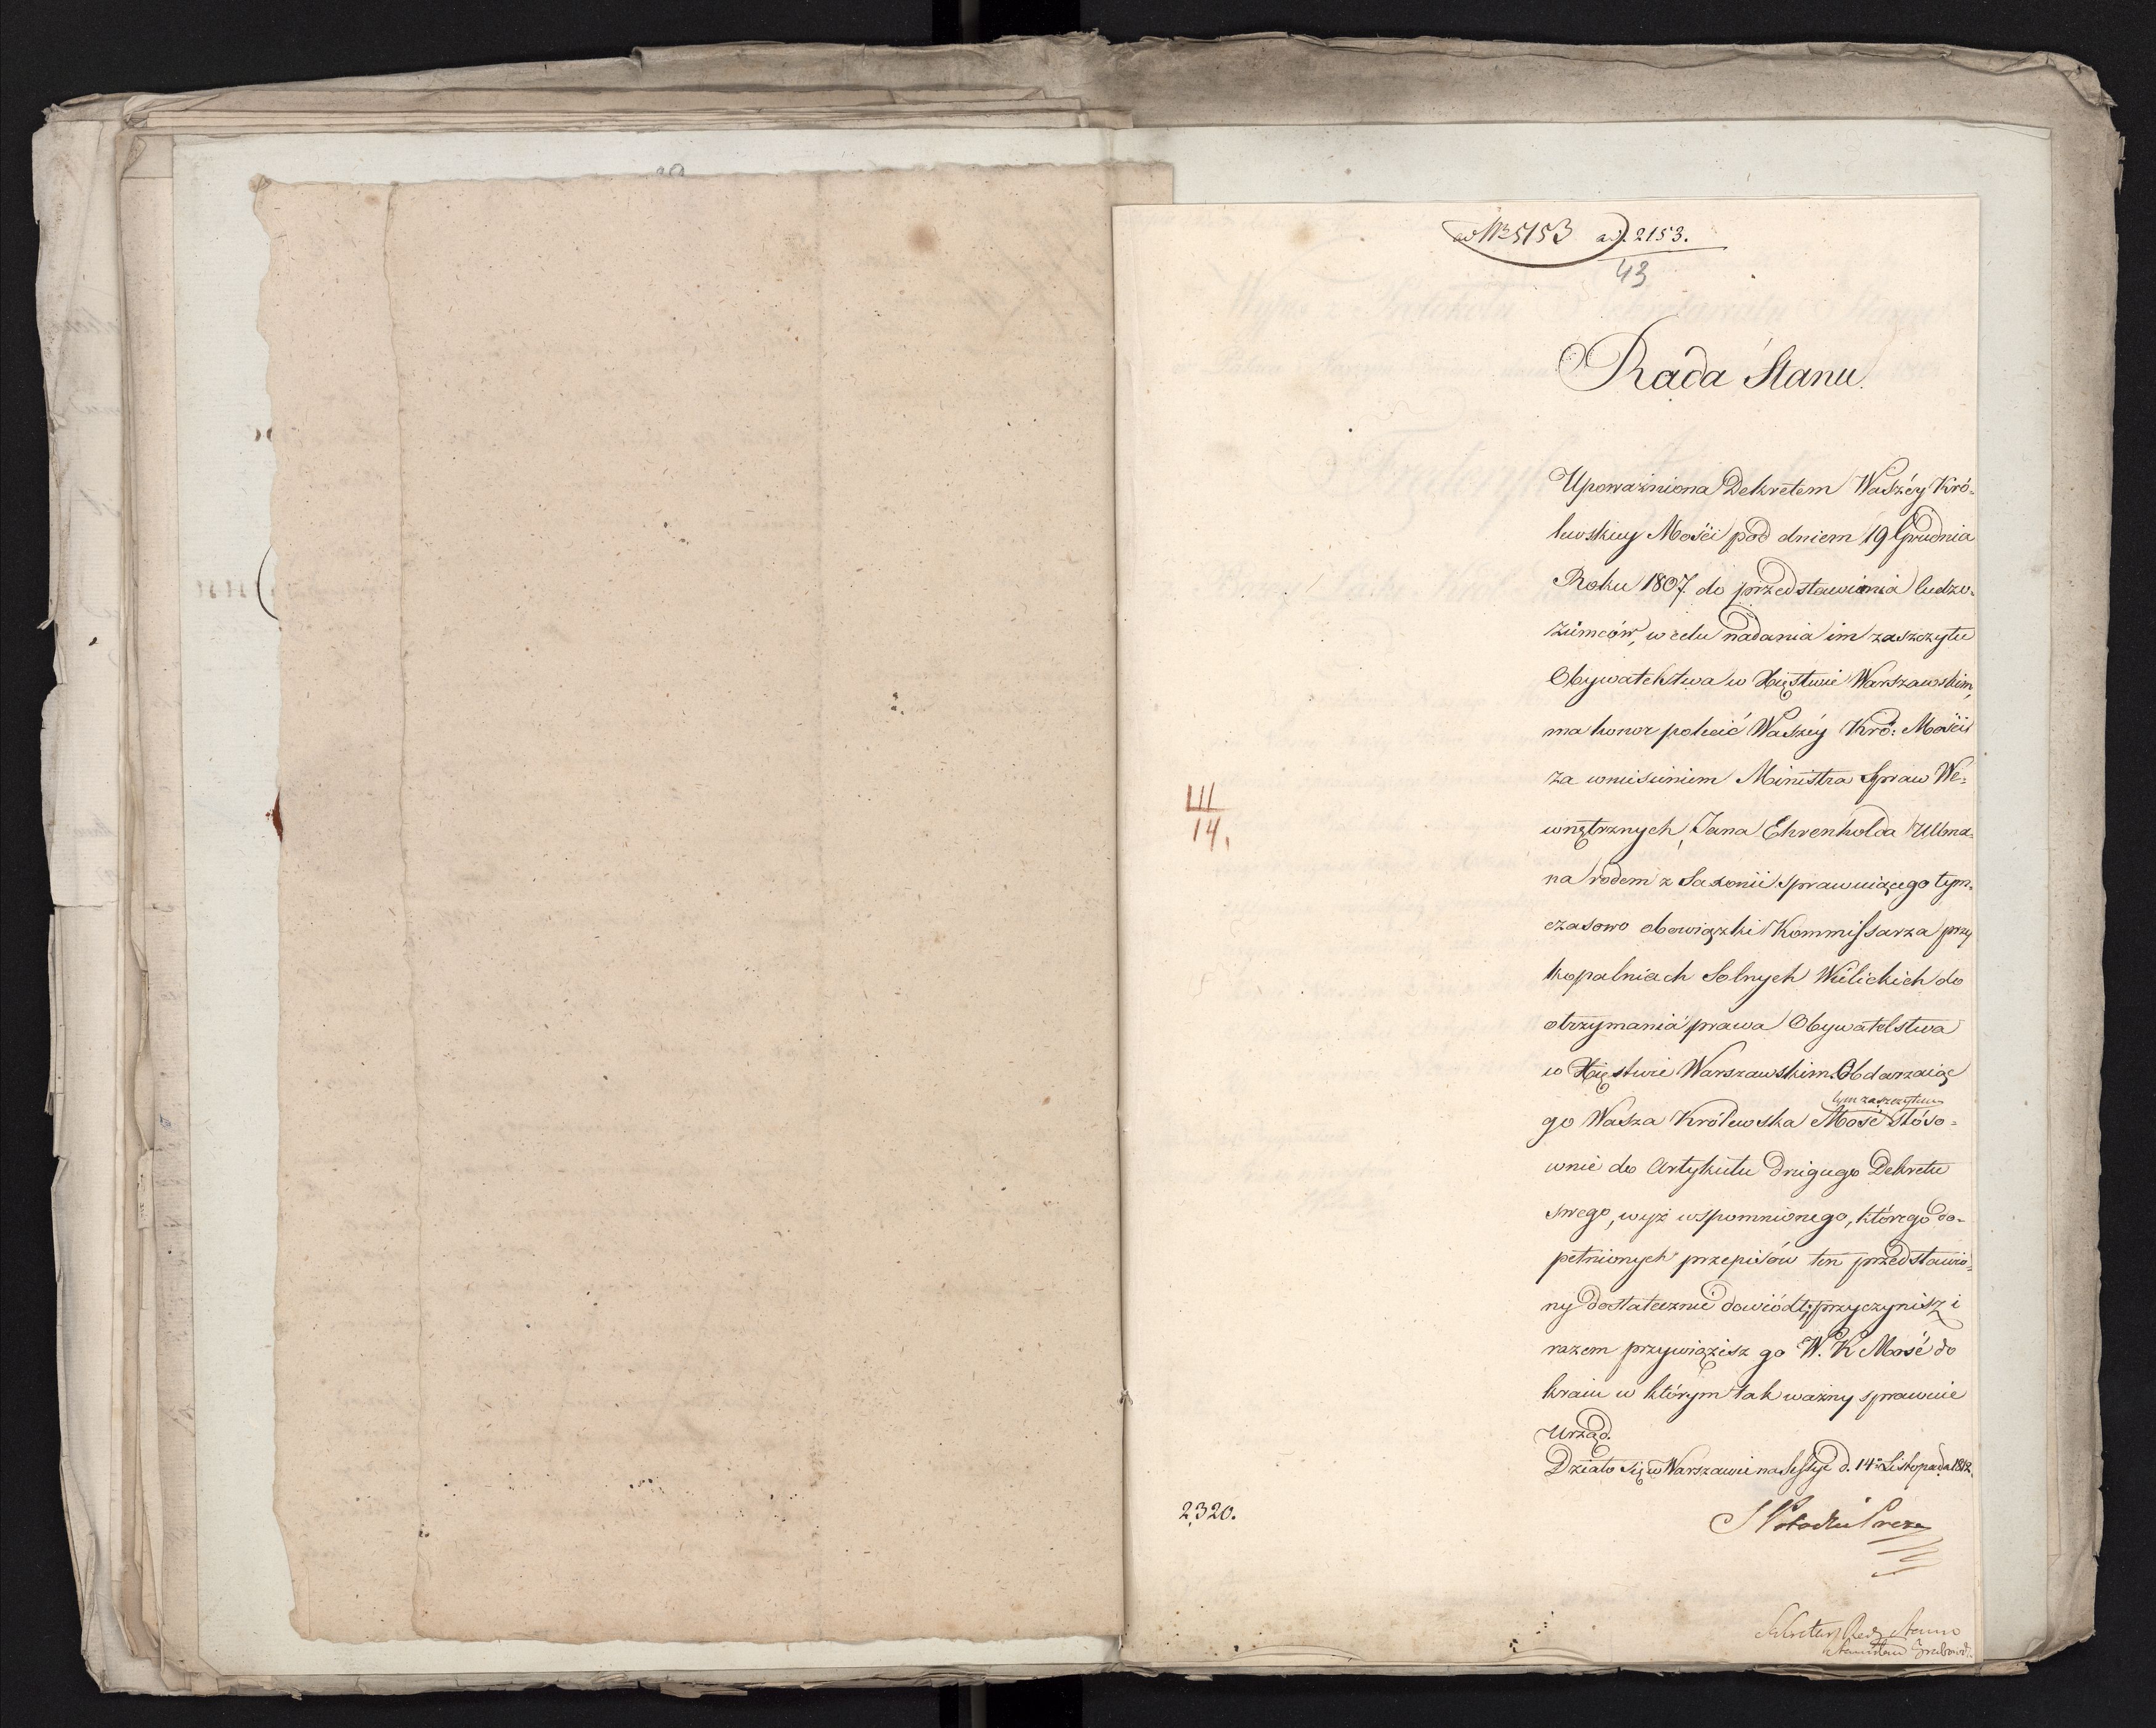 ad Nr 5153 ad. 2153.
43
Rada Stanu.
Upoważniona Dekretem Waszéy Kró-
lewskiey Mości pod dniem 19 Grudnia
Roku 1807 do przedstawienia ludzo-
ziemców, w celu nadania im zaszczytu
Obywatelstwa w Xięstwie Warszawskim,
ma honor polecić Waszéy Kró: Mości
za wniesieniem Ministra Spraw We-
wnętrznych, Jana Ehrenholda Ullma-
na rodem z Saxonii, sprawuiącego tym-
czasowo obowiązki Kommissarza przy
kopalniach Solnych Wielickich do
otrzymania prawa Obywatelstwa
w Xięstwie Warszawskim. Obdarzaiąc
tym zaszczytem
go Wasza Królewska Mość stóso-
wnie do Artykułu drugiego Dekretu
swego, wyż wspomnionego, którego do-
pełnionych przepisów ten przedstawio-
ny dostatecznie dowiódł; przyczynisz i
razem przywiążesz go W. K Mość do
kraiu w którym tak ważny sprawuie
Urząd.
Działo się w Warszawie na Sessyi d. 14 Listopada 1812.
LII
14.
2320.
S Potocki Prezes
Sekretarz Rady Stanu
Stanisław